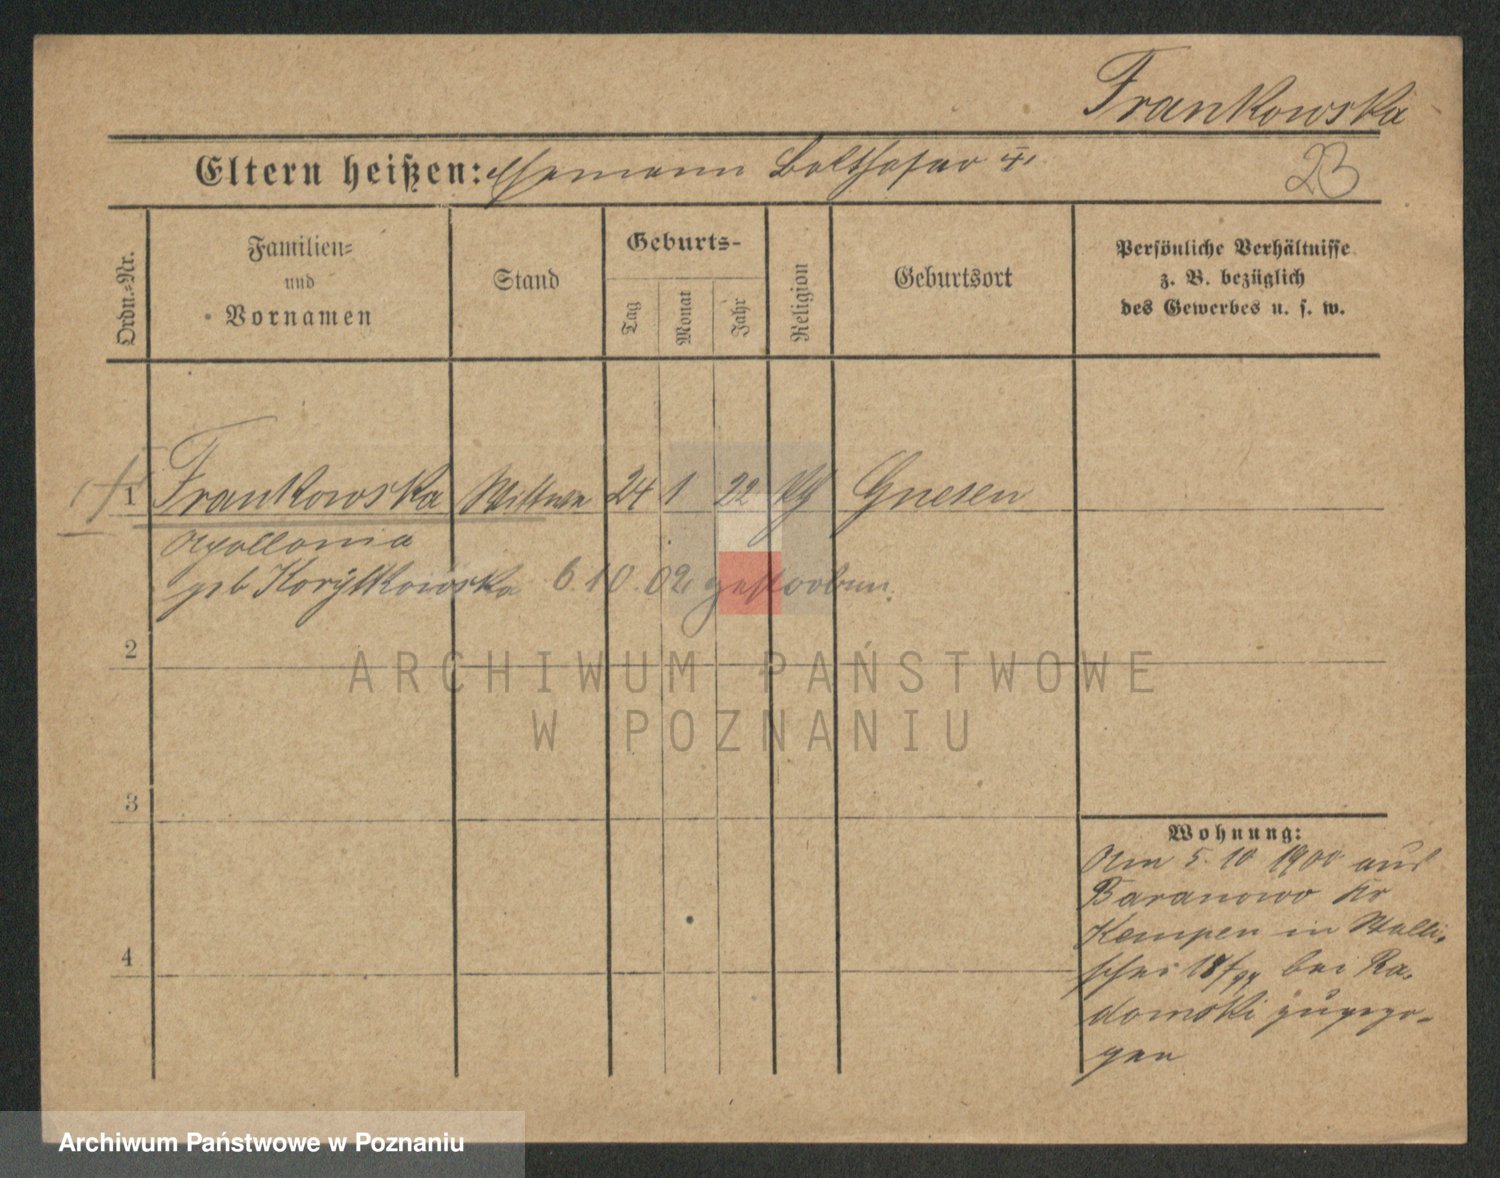 Frankowska
23
Eltern heißen: Balthasar
Ordn.-Nr.
Familien-
und
Vornamen
Stand
Geburts-
Tag
Monat
Jahr
Religion
Geburtsort
Persönliche Verhältnisse
z. B. bezüglich
des Gewerbes u. s. w.
1 Frankowska Wittwe 24 1 22 Gnesen
Apollonia
geb Korytkowska 6.10.02 gestorben.
2
ARCHIWUM PAŃSTWOWE
W POZNANIU
3
4
Wohnung:
Am 5. 10 1900 aus
Baranowo Kr
Kempen in Walli-
schei 18/ bei Ra-
domski zugezo-
gen
Archiwum Państwowe w Poznaniu